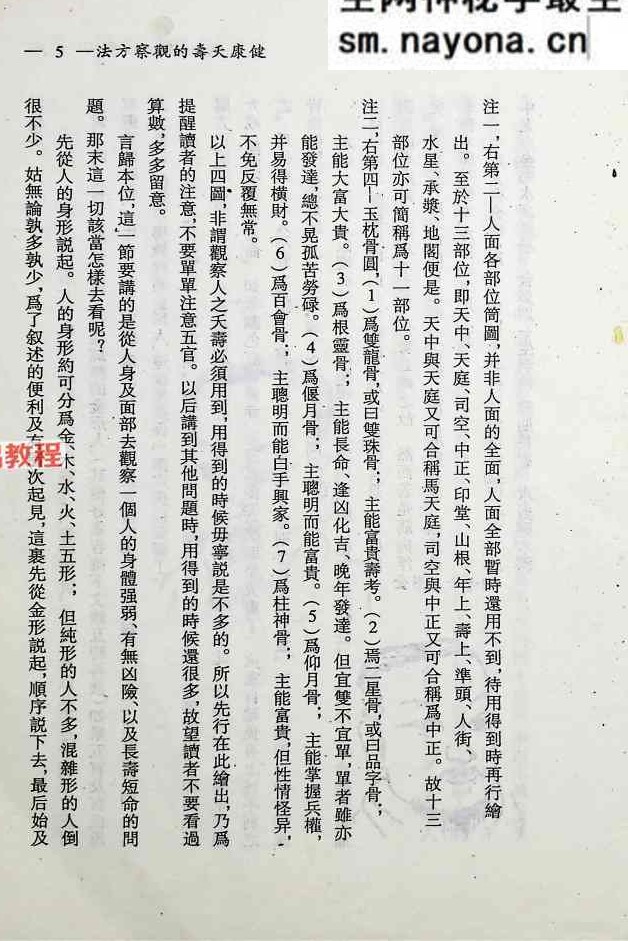 sm.nayona.cn
— 5 —法方察觀的壽夭康健
注一，右第二—人面各部位简圖，并非人面的全面，人面全部暫時還用不到，待用得到時再行繪
出。至於十三部位，即天中、天庭、司空、中正、印堂、山根、年上、壽上、準頭、人街、
水星、承漿、地閣便是。天中與天庭又可合稱馬天庭，司空與中正又可合稱爲中正。故十三
部位亦可簡稱爲十一部位。
注二，右第四—玉枕骨圓，（1）爲雙龍骨，或曰雙珠骨；主能富貴壽考。（2）焉二星骨，或曰品字骨；
主能大富大貴。（3）爲根靈骨；主能長命、逢凶化吉、晚年發達。但宜雙不宜單，單者雖亦
能發達，總不晃孤苦勞碌。（4）爲偃月骨；主聰明而能富貴。（5）爲仰月骨；主能掌握兵權，
并易得橫財。（6）爲百會骨；主聰明而能白手興家。（7）爲柱神骨；主能富貴，但性情怪异，
不免反覆無常。
以上四圖，非謂觀察人之夭壽必須用到，用得到的時候毋寧説是不多的。所以先行在此繪出，乃爲
提醒讀者的注意，不要單單注意五官。以后講到其他問題時，用得到的時候還很多，故望讀者不要看過
算數，多多留意。
言歸本位，這一節要講的是從人身及面部去觀察一個人的身體强弱、有無凶險、以及長壽短命的問
題。那末這一切該當怎樣去看呢？
先從人的身形説起。人的身形約可分爲金、木、水、火、土五形；但純形的人不多，混雜形的人倒
很不少。姑無論孰多孰少，爲了叙述的便利及有次起見，這裹先從金形説起，順序説下去，最后始及
教程